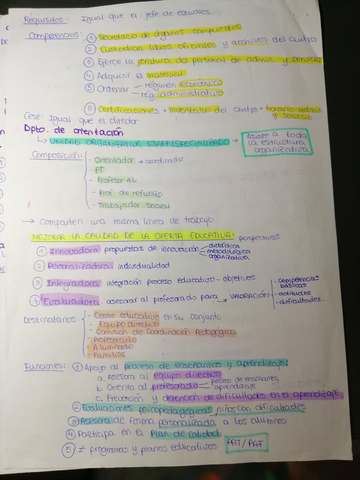 Requisitos: Igual que el jefe de estudios
Competencias: ① Secretario de órganos compuestos
② Custodiar libros oficiales y archivos del centro
③ Ejerce la jefatura del personal de admin y servicio
④ Adquirir el material
⑤ Ordenar - régimen económico
rég. administrativo
⑥ Certificaciones + inventario del centro + horario admin y servicio
Cese: Igual que el director
Dpto. de orientación
↳ UNIDAD ORGANIZATIVA ESPECIALIZADA →
Asiste a toda
la estructura
organizativa
Composición: - Orientador → coordinador
- PT
- Profesor AL
- Prof. de refuerzo
- Trabajador Social
→ Comparten una misma línea de trabajo
MEJORAR LA CALIDAD DE LA OFERTA EDUCATIVA: perspectivas
① Innovadora propuestas de innovación didáctica
metodológica
organizativa
② Personalizadora individualidad
③ Integradora integración proceso educativo - objetivos
④ Evaluadora asesorar al profesorado para VALORACIÓN
- competencias básicas
- actitudes
- dificultades
Destinatarios: - Centro educativo en su conjunto
- Equipo directivo
- Comisión de Coordinación Pedagógica
- Profesorado
- Alumnado
- Familias
Funciones: ① Apoyo al proceso de enseñanza y aprendizaje
a. Asesora al equipo directivo
b. Orienta al profesorado proceso de enseñanza,
aprendizaje
c. Prevención y detención de dificultades en el aprendizaje
② Evaluaciones psicopedagógicas niños con dificultades
③ Asesora de forma personalizada a los alumnos
④ Participa en el Plan de calidad
⑤ ≠ programas y planes educativos PAT / PAF